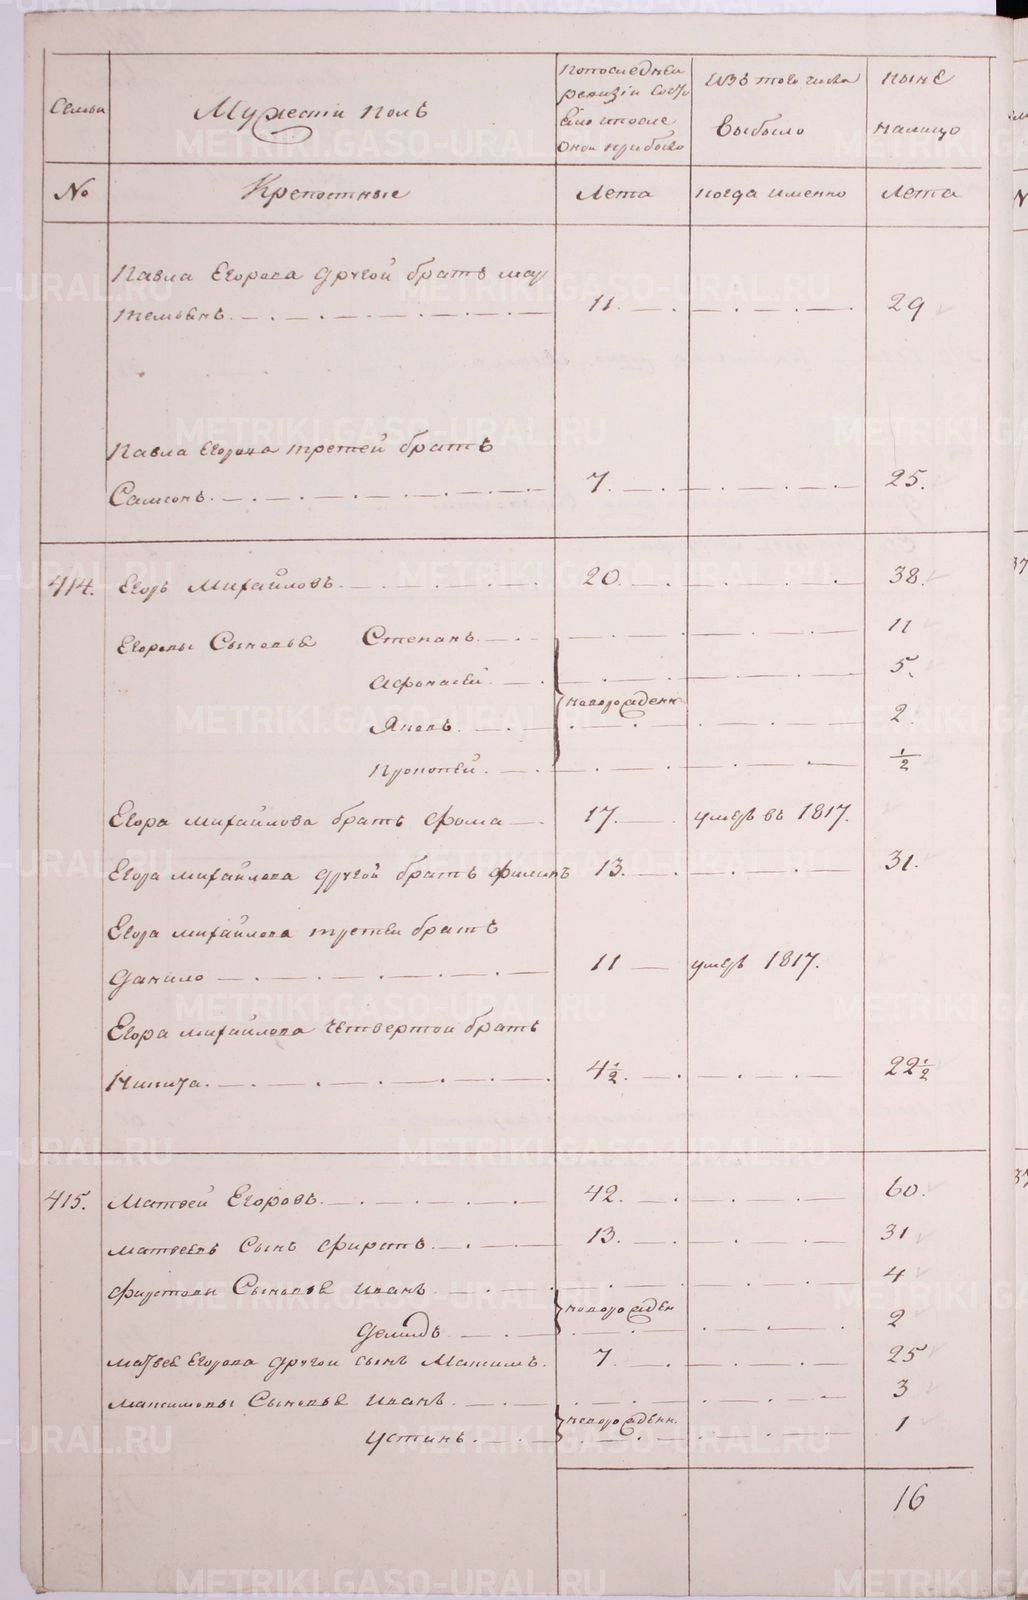 Семьи
Мужескiй полъ
По последней
ревизiи состо
яло и после
оной прибыло
Изъ того числа
выбыло
ныне
налицо
No
Крепостные
Лета
когда именно
Лета
Павла Егорова другой братъ
11.
29
Павла Егорова третей братъ
Самсонъ.
7.
25.
414.
Егоръ Михайловъ.
20.
38.
Егоровы Сыновья Степанъ.
11
Афонасей.
5.
новорожден
Яковъ.
2.
Прокопей.
1/2
Егора Михайлова братъ Фома
17.
умеръ въ 1817.
Егора Михайлова другой братъ Филипъ
13.
31.
Егора Михайлова третей братъ
Данило
11
умеръ 1817.
Егора Михайлова четвертой братъ
Никита.
4 1/2.
22 1/2
415.
Матвей Егоровъ.
42.
60.
Матвеевъ Сынъ Фирстъ.
13.
31
Фирстовы Сыновья Иванъ.
4
новорожден
Демидъ.
2
Матвея Егорова другой сынъ Максимъ.
7.
25
Максимовы Сыновья Иванъ.
3
новорожденн.
Устинъ.
1
16
METRIKI.GASO-URAL.RU